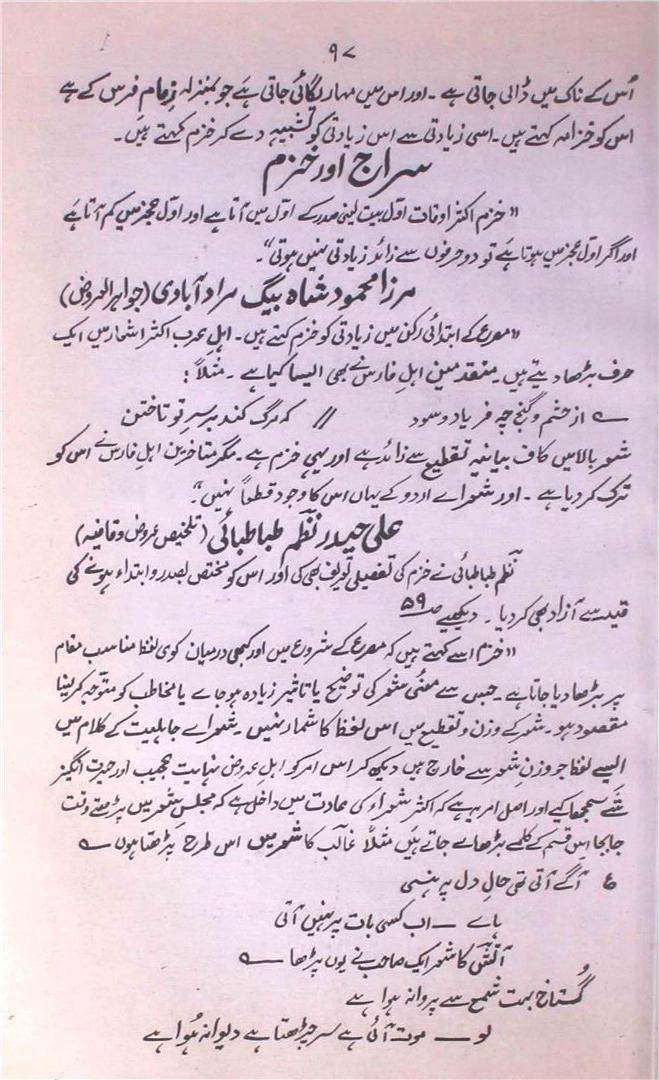 ۹۷
اُس کے ناک میں ڈالی جاتی ہے ۔ اور اس میں مہار لگائی جاتی ہے جو بمنزلہ زمام فرس کے ہے
اس کو خزامہ کہتے ہیں ۔ اسی زیادتی سے اس زیادتی کو تشبیہہ دے کر خزم کہتے ہیں ۔
سراج اور خزم
"خزم اکثر اوقات اوّل بیت یعنی صدر کے اوّل میں آتا ہے اور اوّل عجز میں کم آتا ہے
اور اگر اوّل عجز میں ہوتا ہے تو دو حرفوں سے زائد زیادتی نہیں ہوتی"۔
مرزا محمود شاہ بیگ مراد آبادی (جواہر العروض)
"مصرع کے ابتدائی رکن میں زیادتی کو خزم کہتے ہیں ۔ اہل عرب اکثر اشعار میں ایک
حرف بڑھا دیتے ہیں ۔ متقدمین اہل فارس نے بھی ایسا کیا ہے ۔ مثلاً :
؎ از خشم و گنج چہ فریاد وسود // کہ مرگ کند بر سرِ تو تاختن
شعر بالا میں کاف بیانیہ تقطیع سے زائد ہے اور یہی خزم ہے ۔ مگر متاخرین اہل فارس نے اس کو
ترک کر دیا ہے ۔ اور شعراے اردو کے یہاں اس کا وجود قطعاً نہیں"۔
علی حیدر نظم طباطبائی (تلخیص عروض و قافیہ)
نظم طباطبائی نے خزم کی تفصیلی تعریف بھی کی اور اس کو مختص بصدر و ابتداء ہونے کی
قید سے آزاد بھی کر دیا ۔ دیکھیے صـ ۵۹
"خزم اسے کہتے ہیں کہ مصرع کے شروع میں اور کبھی درمیان کوی لفظ مناسب مقام
پر بڑھا دیا جاتا ہے ۔ جس سے معنٰی شعر کی توضیح یا تاثیر زیادہ ہو جاے یا مخاطب کو متوجہ کرلینا
مقصود ہو ۔ شعر کے وزن و تقطیع میں اس لفظ کا شمار نہیں ۔ شعراے جاہلیت کے کلام میں
ایسے لفظ جو وزن شعر سے خارج ہیں دیکھ کر اس امر کو اہل عروض نہایت عجیب اور حیرت انگیز
شے سمجھا کیے اور اصل امر یہ ہے کہ اکثر شعراء کی عادت میں داخل ہے کہ مجلس شعر میں پڑھتے وقت
جابجا اس قسم کے کلمے بڑھاے جاتے ہیں مثلاً غالب کا شعر میں اس طرح پڑھتا ہوں ؎
ع آگے آتی تھی حالِ دل پر ہنسی
ہاے — اب کسی بات پر نہیں آتی
آتش کا شعر ایک صاحب نے یوں پڑھا ؎
گُستاخ بہت شمع سے پروانہ ہوا ہے
لو — موت آئی ہے سر چڑھتا ہے دیوانہ ہُوا ہے